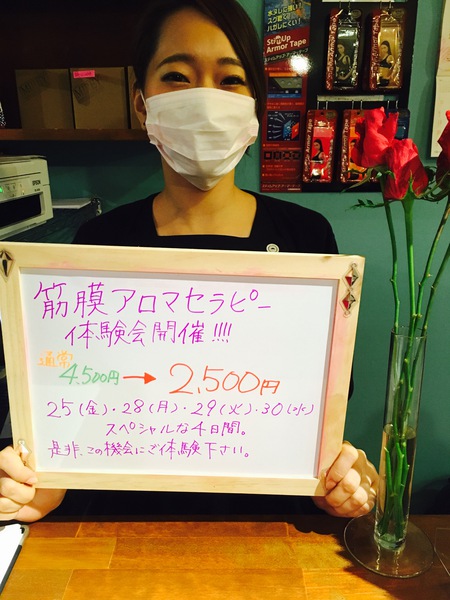 筋膜アロマセラピー
体験会開催!!!!
通常
4,500円→2,500円
25(金)・28(月)・29(火)・30(水)
スペシャルな4日間。
是非、この機会にご体験下さい。
EPSON
StretchUp
Armor Tape
Armor Tape